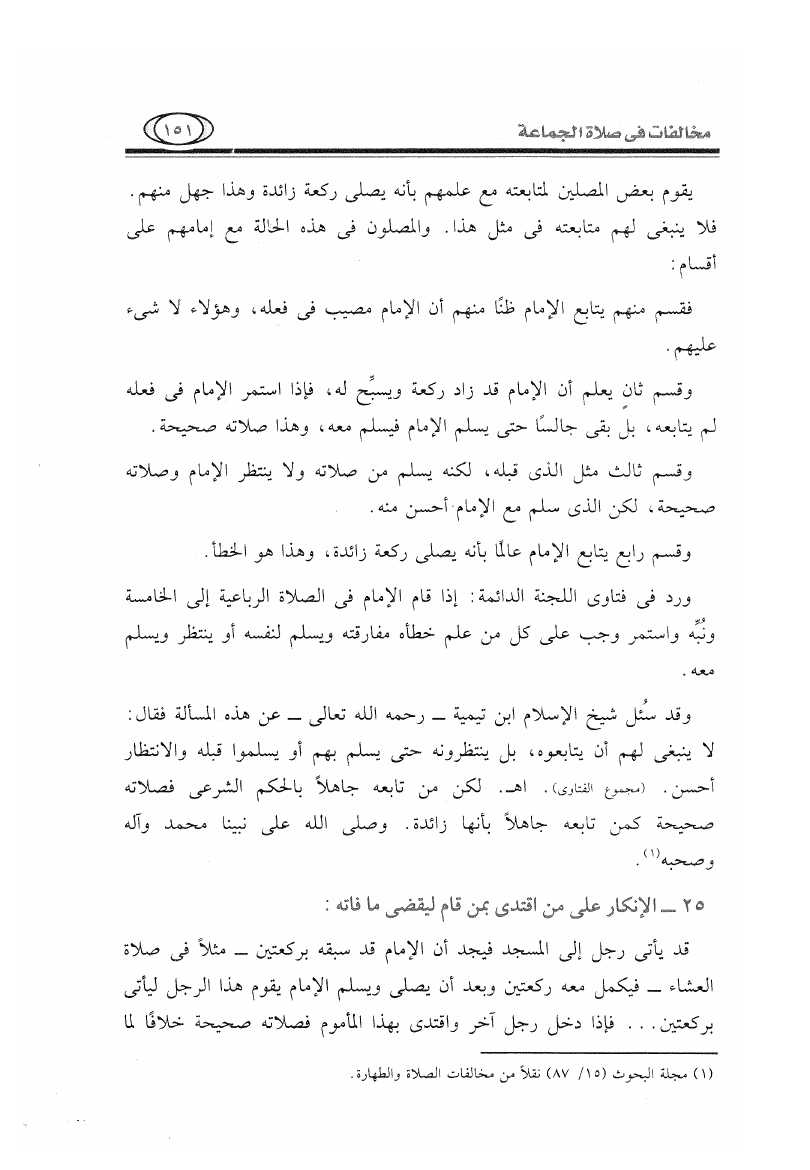 مخالفات فى صلاة الجماعة ١٥١
يقوم بعض المصلين لمتابعته مع علمهم بأنه يصلى ركعة زائدة وهذا جهل منهم.
فلا ينبغى لهم متابعته فى مثل هذا. والمصلون فى هذه الحالة مع إمامهم على
أقسام:
فقسم منهم يتابع الإمام ظنًا منهم أن الإمام مصيب فى فعله، وهؤلاء لا شىء
عليهم.
وقسم ثانٍ يعلم أن الإمام قد زاد ركعة ويسبِّح له، فإذا استمر الإمام فى فعله
لم يتابعه، بل بقى جالسًا حتى يسلم الإمام فيسلم معه، وهذا صلاته صحيحة.
وقسم ثالث مثل الذى قبله، لكنه يسلم من صلاته ولا ينتظر الإمام وصلاته
صحيحة، لكن الذى سلم مع الإمام أحسن منه.
وقسم رابع يتابع الإمام عالمًا بأنه يصلى ركعة زائدة، وهذا هو الخطأ.
ورد فى فتاوى اللجنة الدائمة: إذا قام الإمام فى الصلاة الرباعية إلى الخامسة
ونُبِّه واستمر وجب على كل من علم خطأه مفارقته ويسلم لنفسه أو ينتظر ويسلم
معه.
وقد سئل شيخ الإسلام ابن تيمية ــ رحمه الله تعالى ــ عن هذه المسألة فقال:
لا ينبغى لهم أن يتابعوه، بل ينتظرونه حتى يسلم بهم أو يسلموا قبله والانتظار
أحسن. (مجموع الفتاوى). اهـ. لكن من تابعه جاهلاً بالحكم الشرعى فصلاته
صحيحة كمن تابعه جاهلاً بأنها زائدة. وصلى الله على نبينا محمد وآله
وصحبه(١).
٢٥ ــ الإنكار على من اقتدى بمن قام ليقضى ما فاته:
قد يأتى رجل إلى المسجد فيجد أن الإمام قد سبقه بركعتين ــ مثلاً فى صلاة
العشاء ــ فيكمل معه ركعتين وبعد أن يصلى ويسلم الإمام يقوم هذا الرجل ليأتى
بركعتين... فإذا دخل رجل آخر واقتدى بهذا المأموم فصلاته صحيحة خلافًا لما
(١) مجلة البحوث (١٥/ ٨٧) نقلاً من مخالفات الصلاة والطهارة.